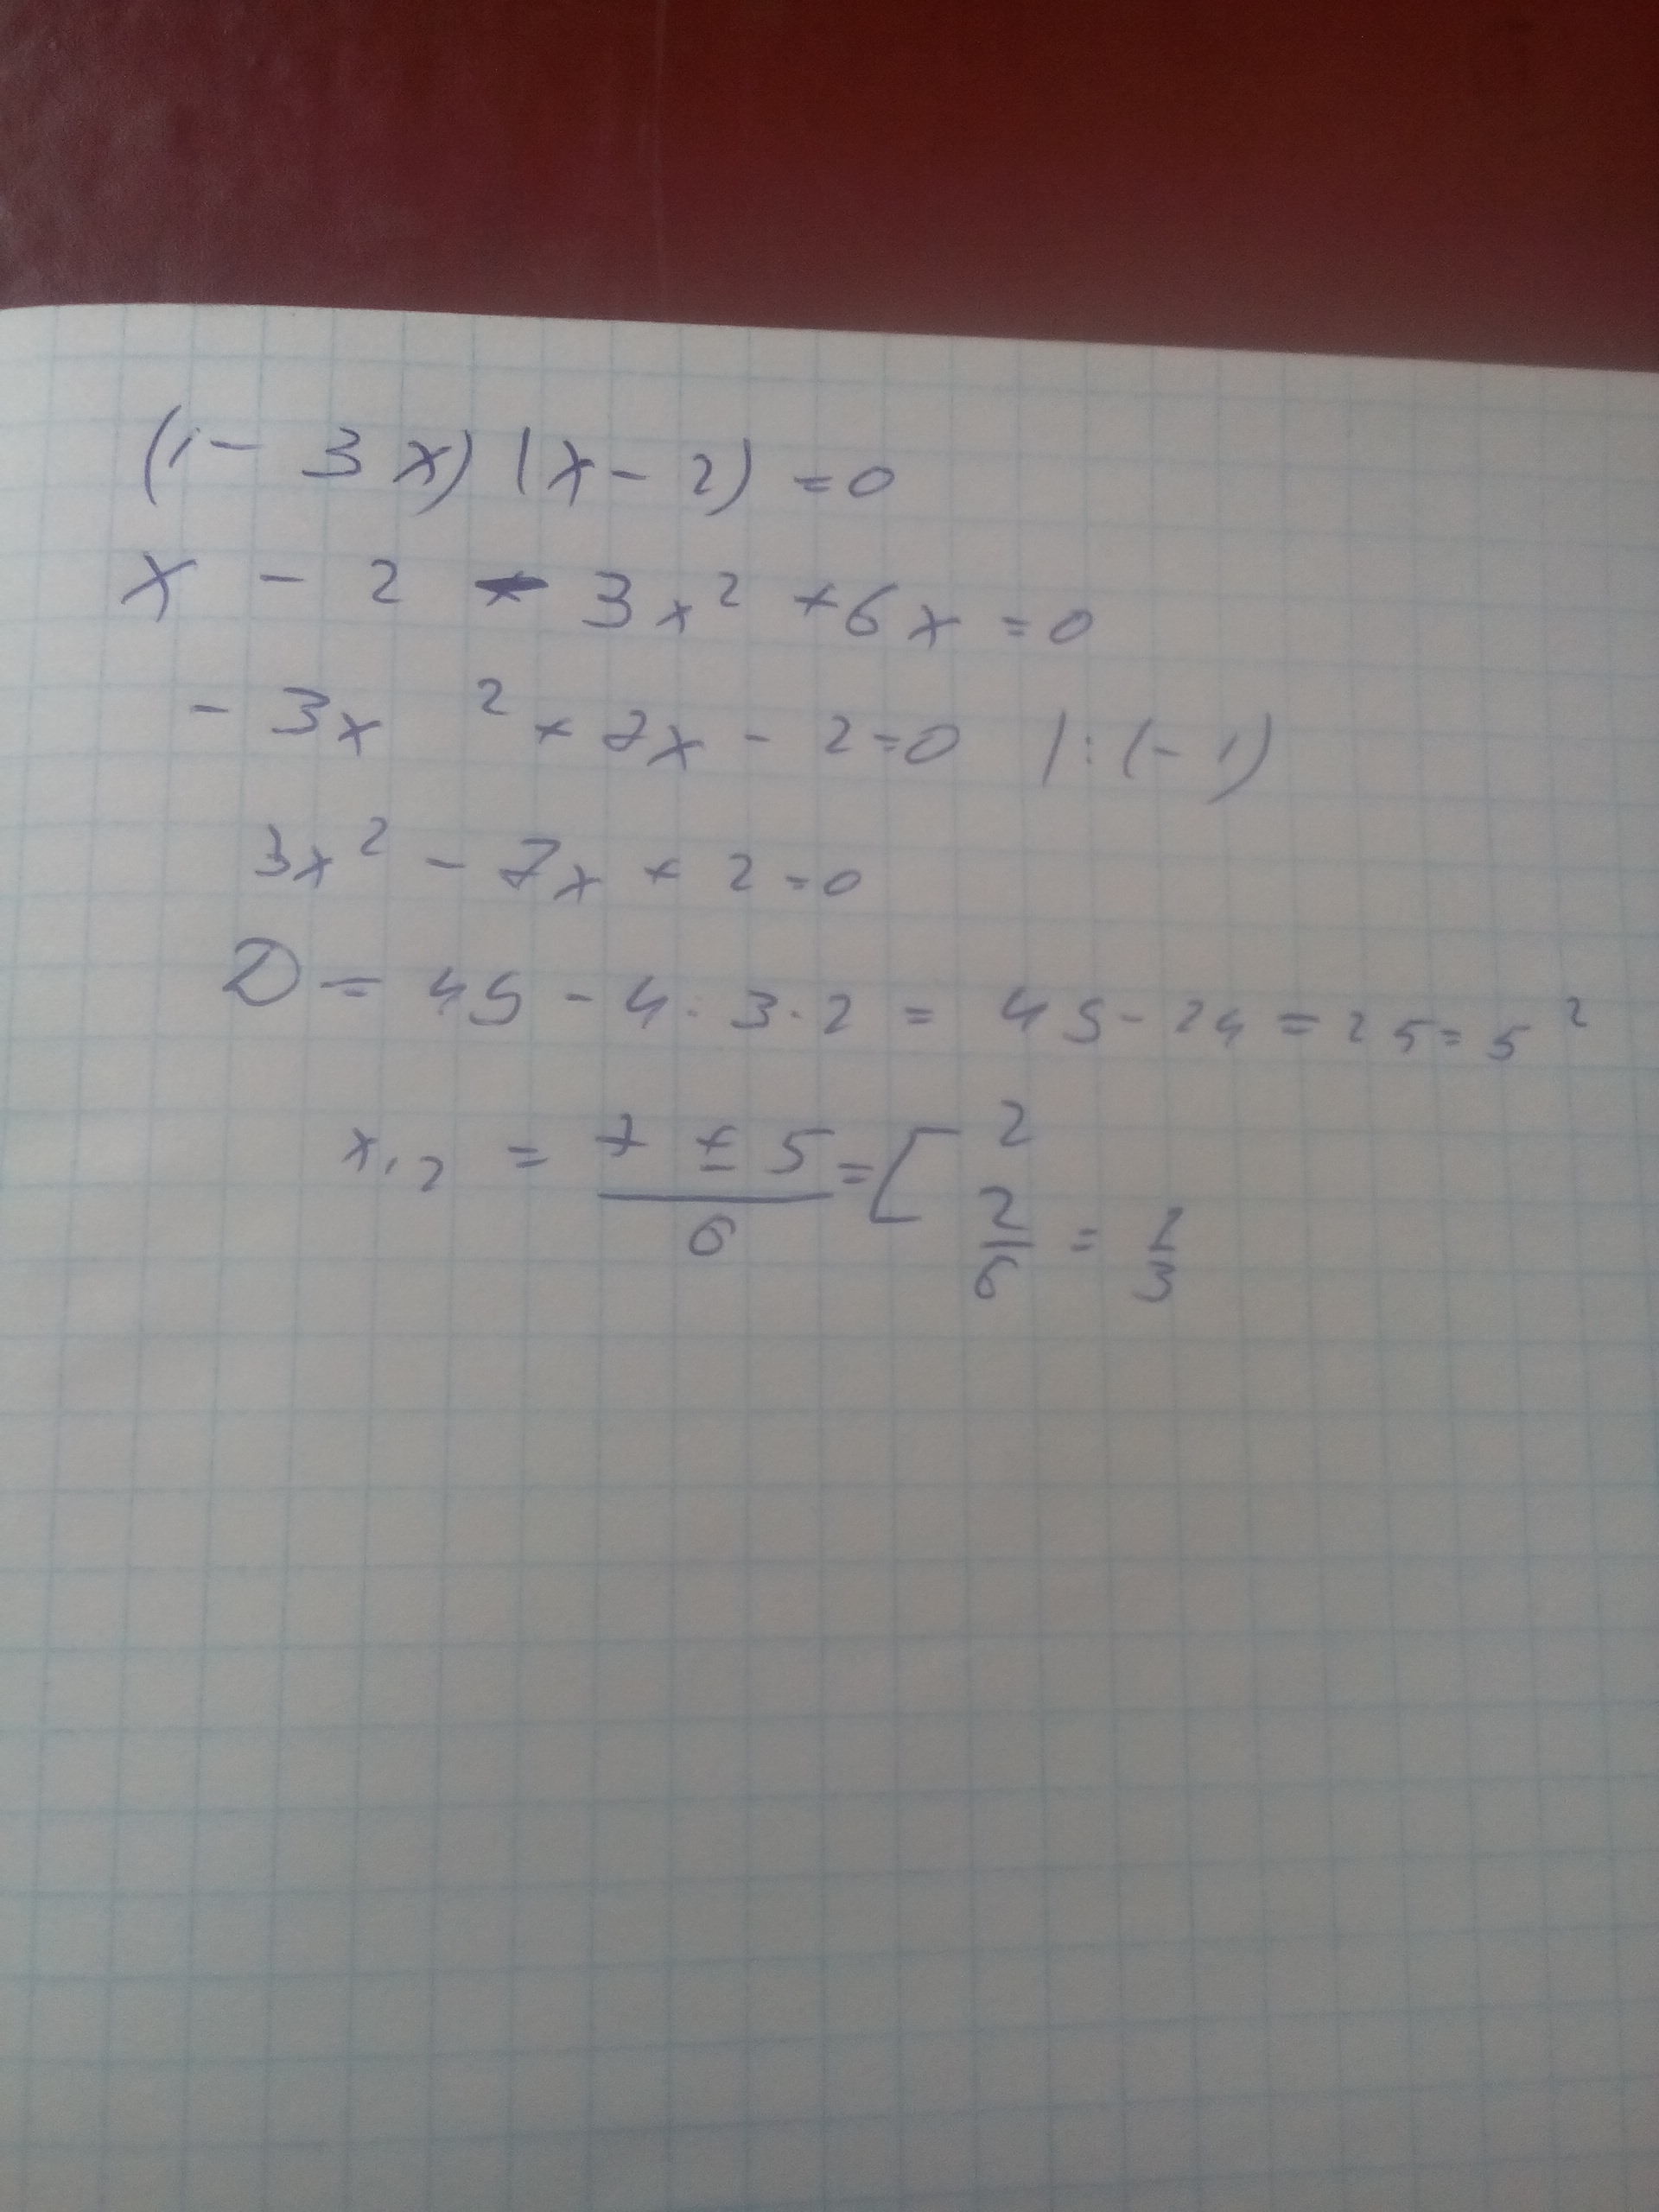 (1 - 3x)(x - 2) = 0
x - 2 - 3x² + 6x = 0
- 3x² + 7x - 2 = 0 | : (- 1)
3x² - 7x + 2 = 0
D = 49 - 4 · 3 · 2 = 49 - 24 = 25 = 5²
x₁,₂ = (7 ± 5)/6 = [ 2
2/6 = 1/3